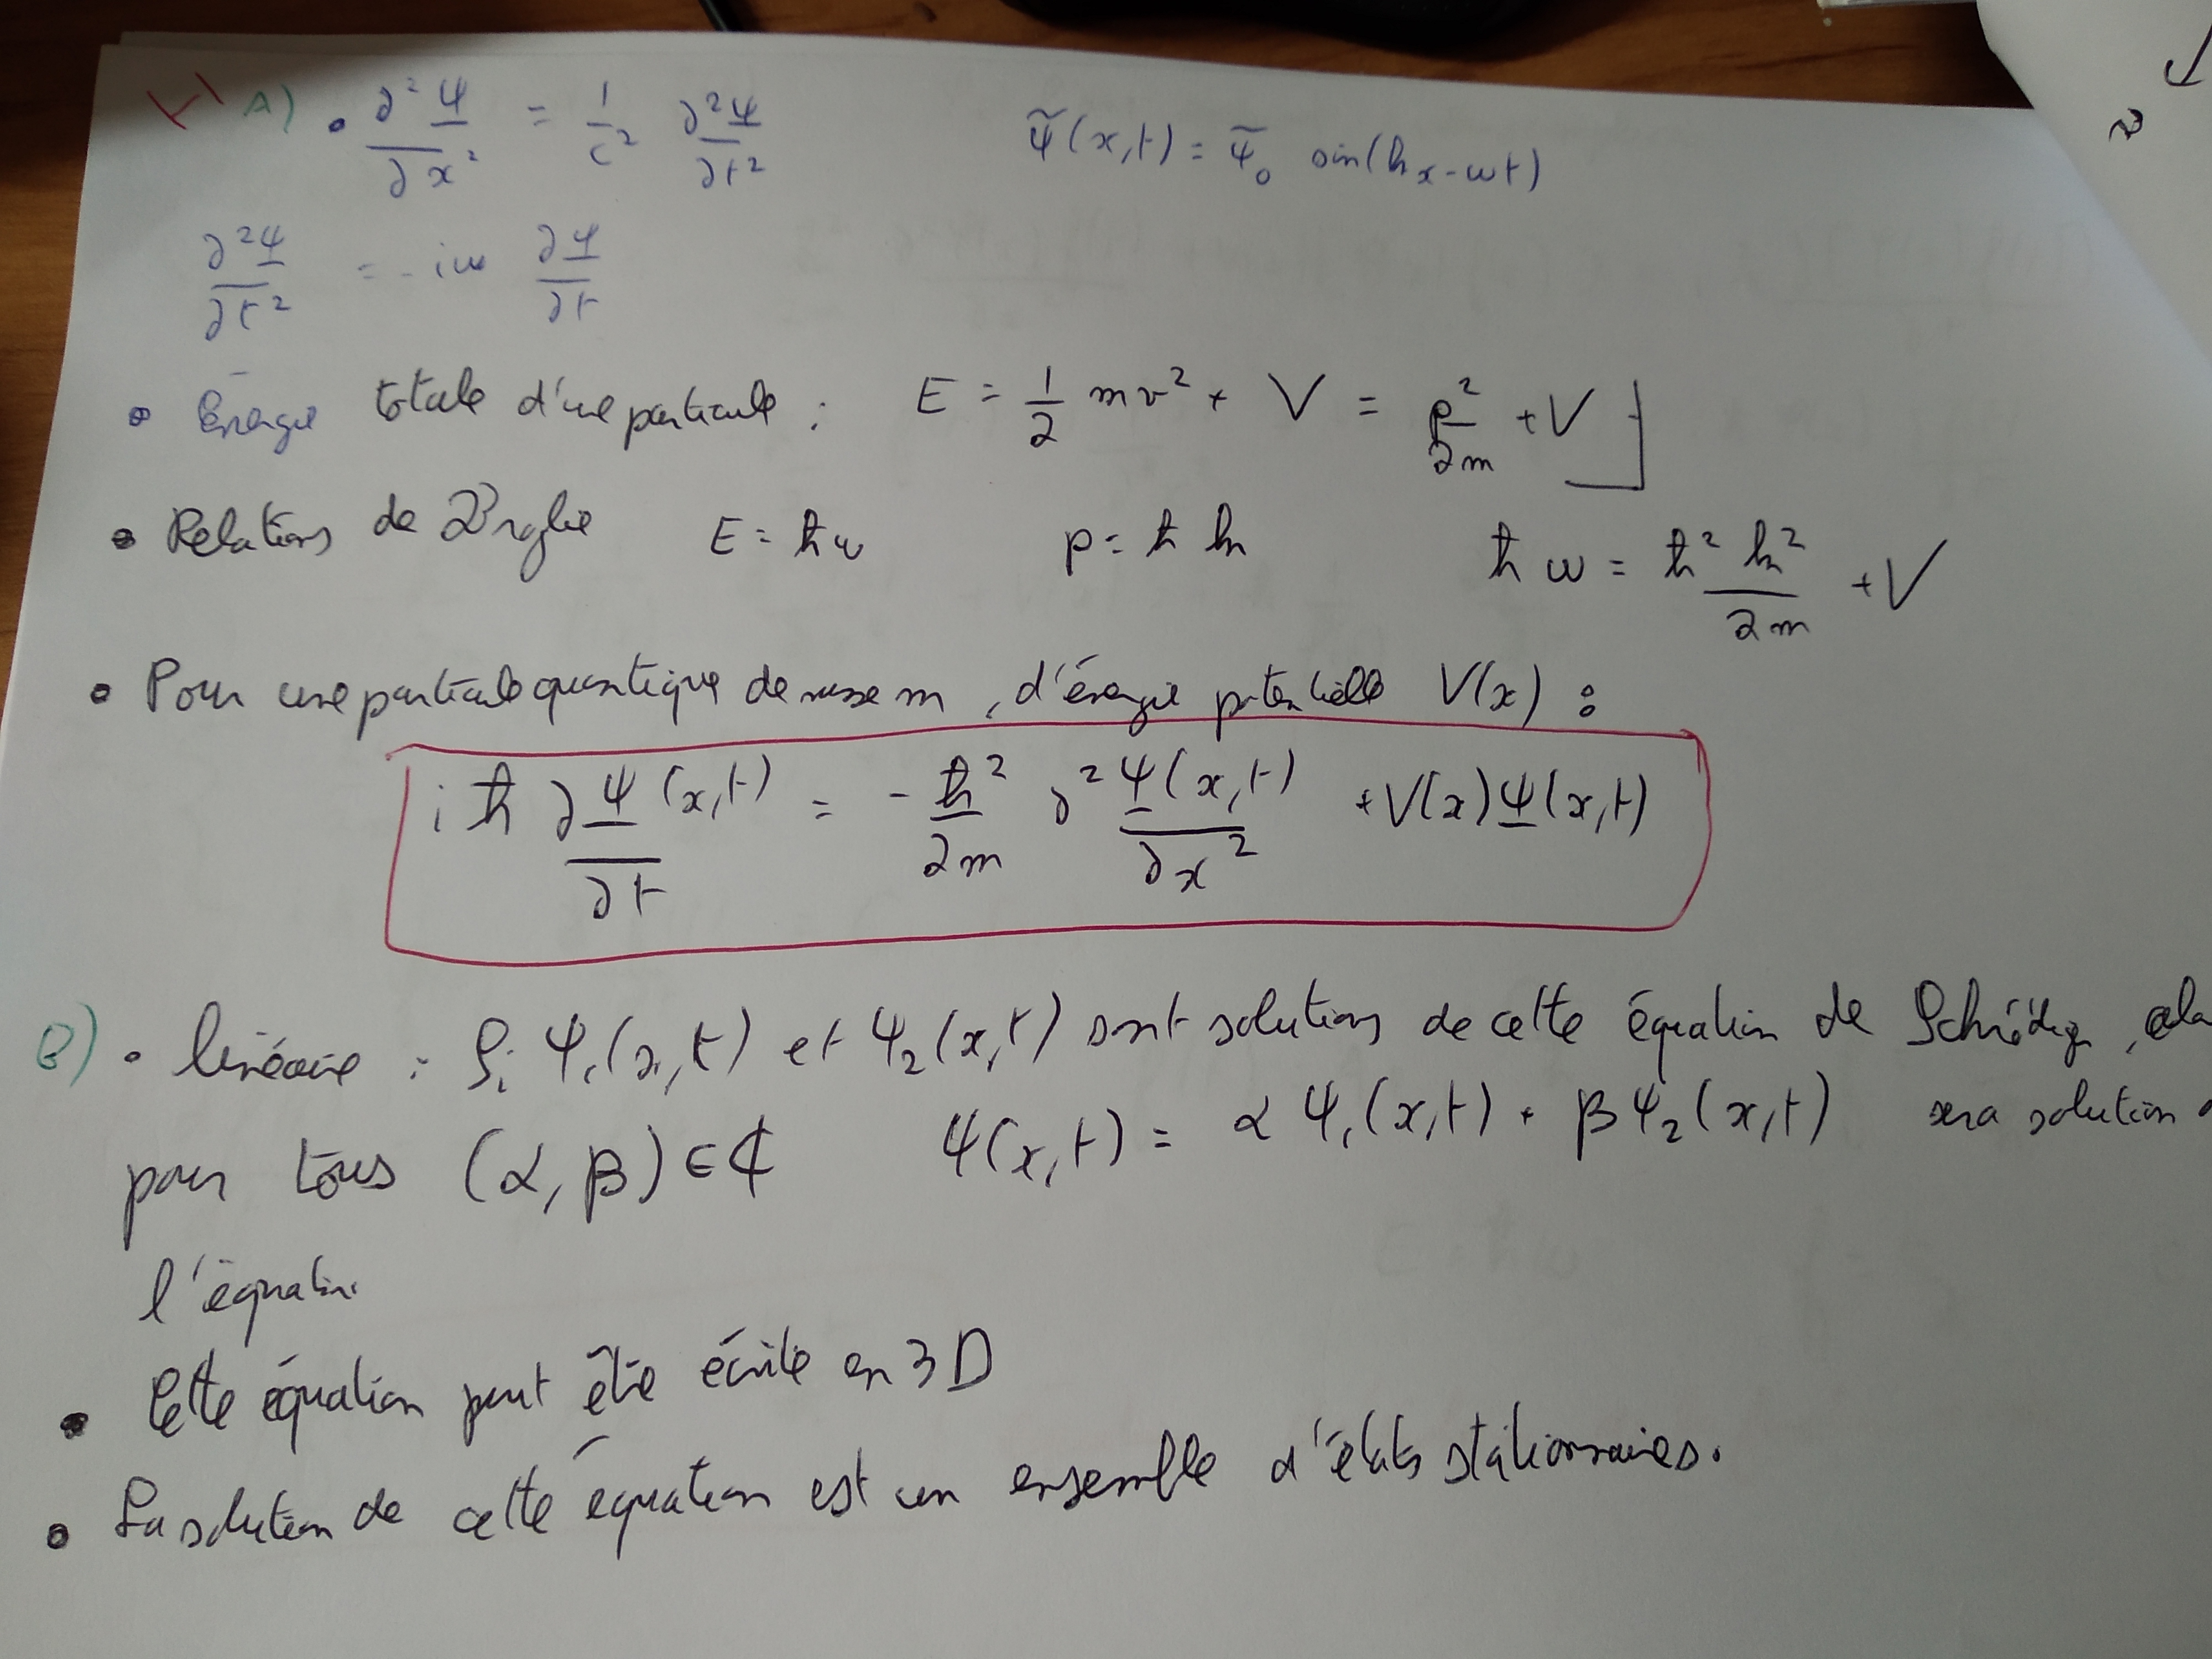 I A) • ∂²Ψ/∂x² = 1/c² ∂²Ψ/∂t² Ψ̃(x,t) = Ψ̃₀ sin(kx - ωt)
∂²Ψ/∂t² = - iω ∂Ψ/∂t
• Énergie totale d'une particule : E = 1/2 mv² + V = p²/2m + V
• Relations de E = ħω p = ħ k ħ ω = ħ² k²/2m + V
• Pour une particule quantique de masse m, d'énergie potentielle V(x) :
i ħ ∂Ψ(x,t)/∂t = - ħ²/2m ∂²Ψ(x,t)/∂x² + V(x) Ψ(x,t)
B) • linéaire : Si Ψ₁(x,t) et Ψ₂(x,t) sont solutions de cette équation de
pour tous (α, β) ∈ ℂ Ψ(x,t) = α Ψ₁(x,t) + β Ψ₂(x,t) sera solution
l'équation
• Cette équation peut être écrite en 3D
• La solution de cette équation est un ensemble d'états stationnaires.